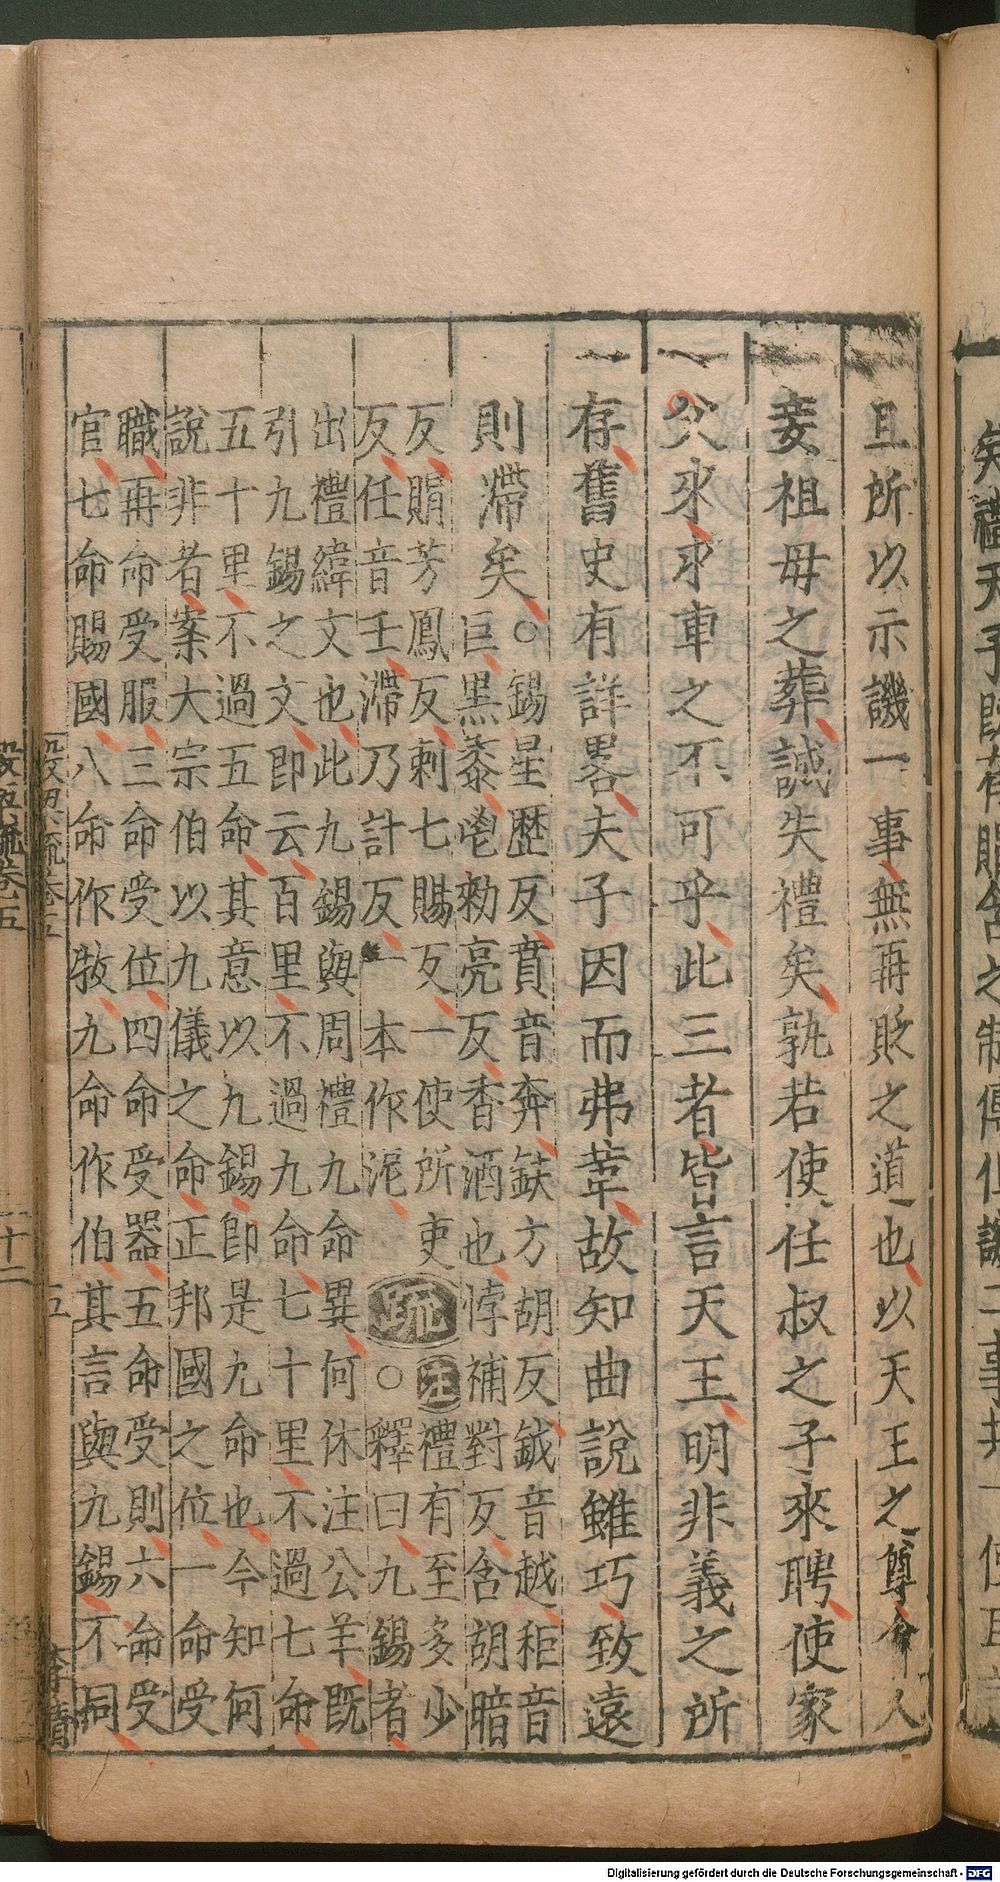 且所以示譏一事無再貶之道也以天王之尊會人
妾祖毋之葬誠失禮矣孰若使任叔之子來聘使家
父來求車之不可乎此三者皆言天王明非義之所
存舊史有詳畧夫子因而弗革故知曲說雖巧致遠
則滯矣○錫星歷反賁音奔鈇方胡反鉞音越秬音
巨黑黍鬯勑亮反香酒也悖補對反含胡暗
反賵芳鳳反刺七賜反一使所吏
反任音壬滯乃計反一本作泥
疏 注禮有至多少
○釋曰九錫者
出禮緯文也此九錫與周禮九命異何休注公羊既
引九錫之文即云百里不過九命七十里不過七命
五十里不過五命其意以九錫即是九命也今知何
說非者案大宗伯以九儀之命正邦國之位一命受
職再命受服三命受位四命受器五命受則六命受
官七命賜國八命作牧九命作伯其言與九錫不同
五
Digitalisierung gefördert durch die Deutsche Forschungsgemeinschaft - DFG